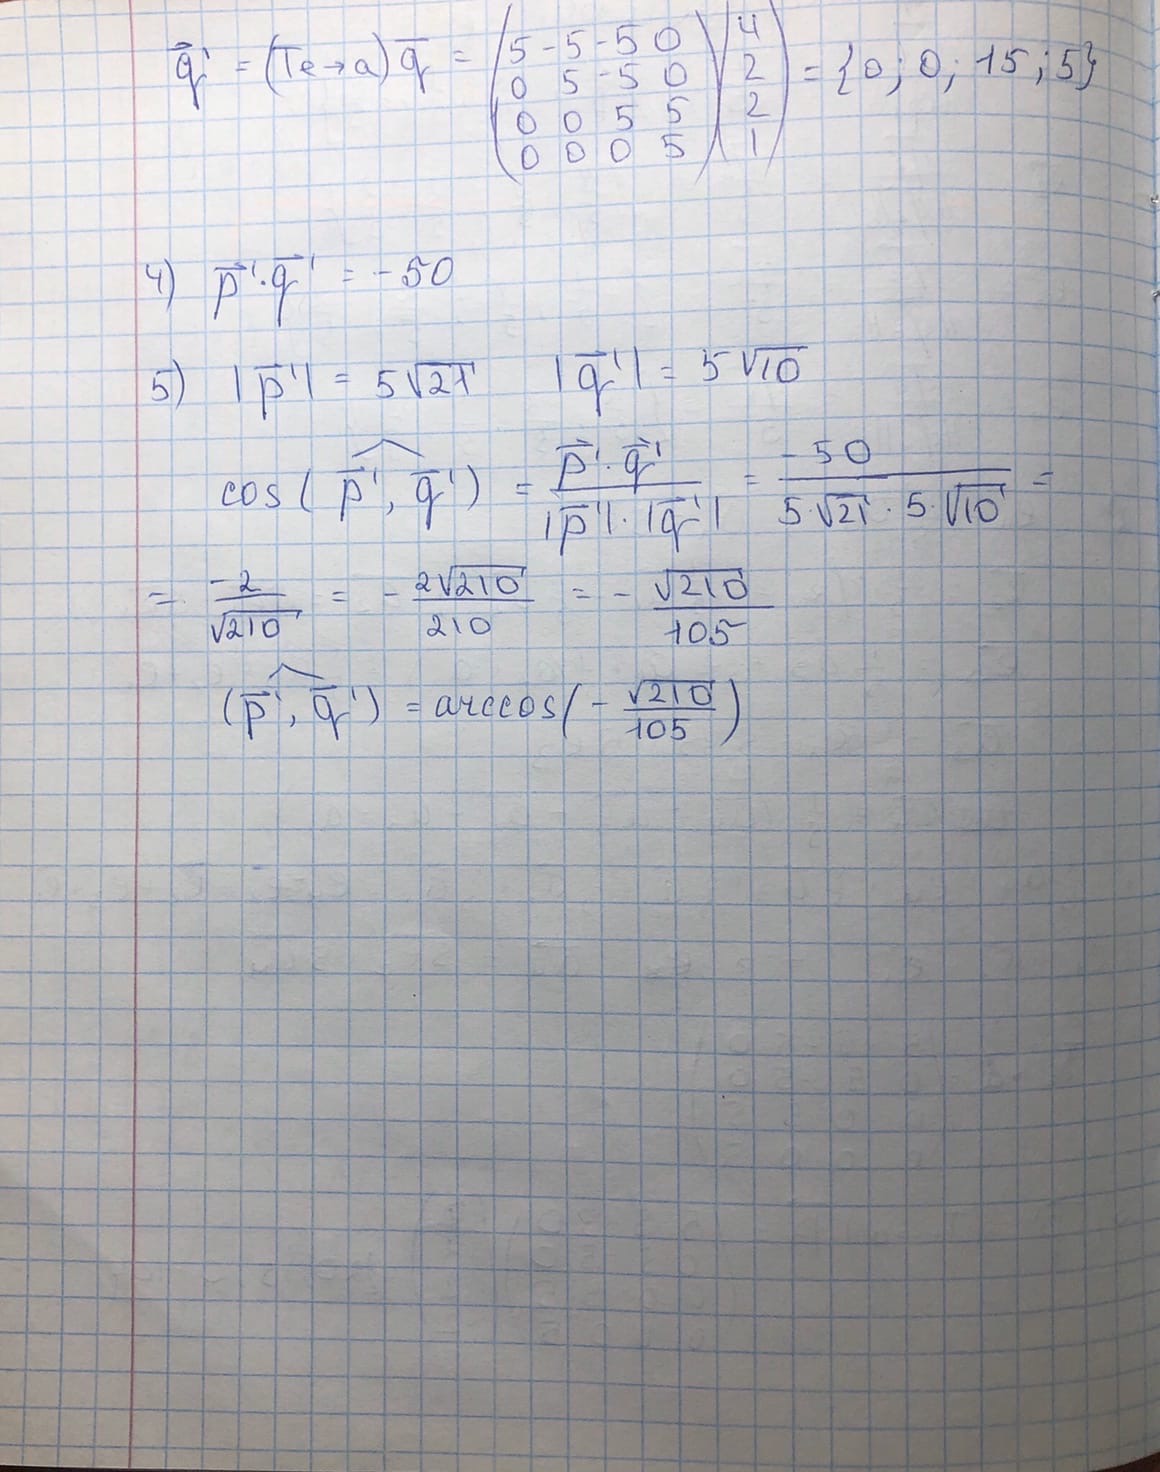 q̄' = (Te→a) q̄ = (5 -5 -5 0) (4) = {0; 0; 15; 5}
0 5 -5 0 2
0 0 5 5 2
0 0 0 5 1
4) p̄'·q̄' = -50
5) |p̄'| = 5√21 |q̄'| = 5√10
cos(p̄', q̄') = p̄'·q̄' / |p̄'|·|q̄'| = -50 / 5·√21·5·√10 =
= -2/√210 = - 2√210/210 = - √210/105
(p̄', q̄') = arccos(- √210/105)